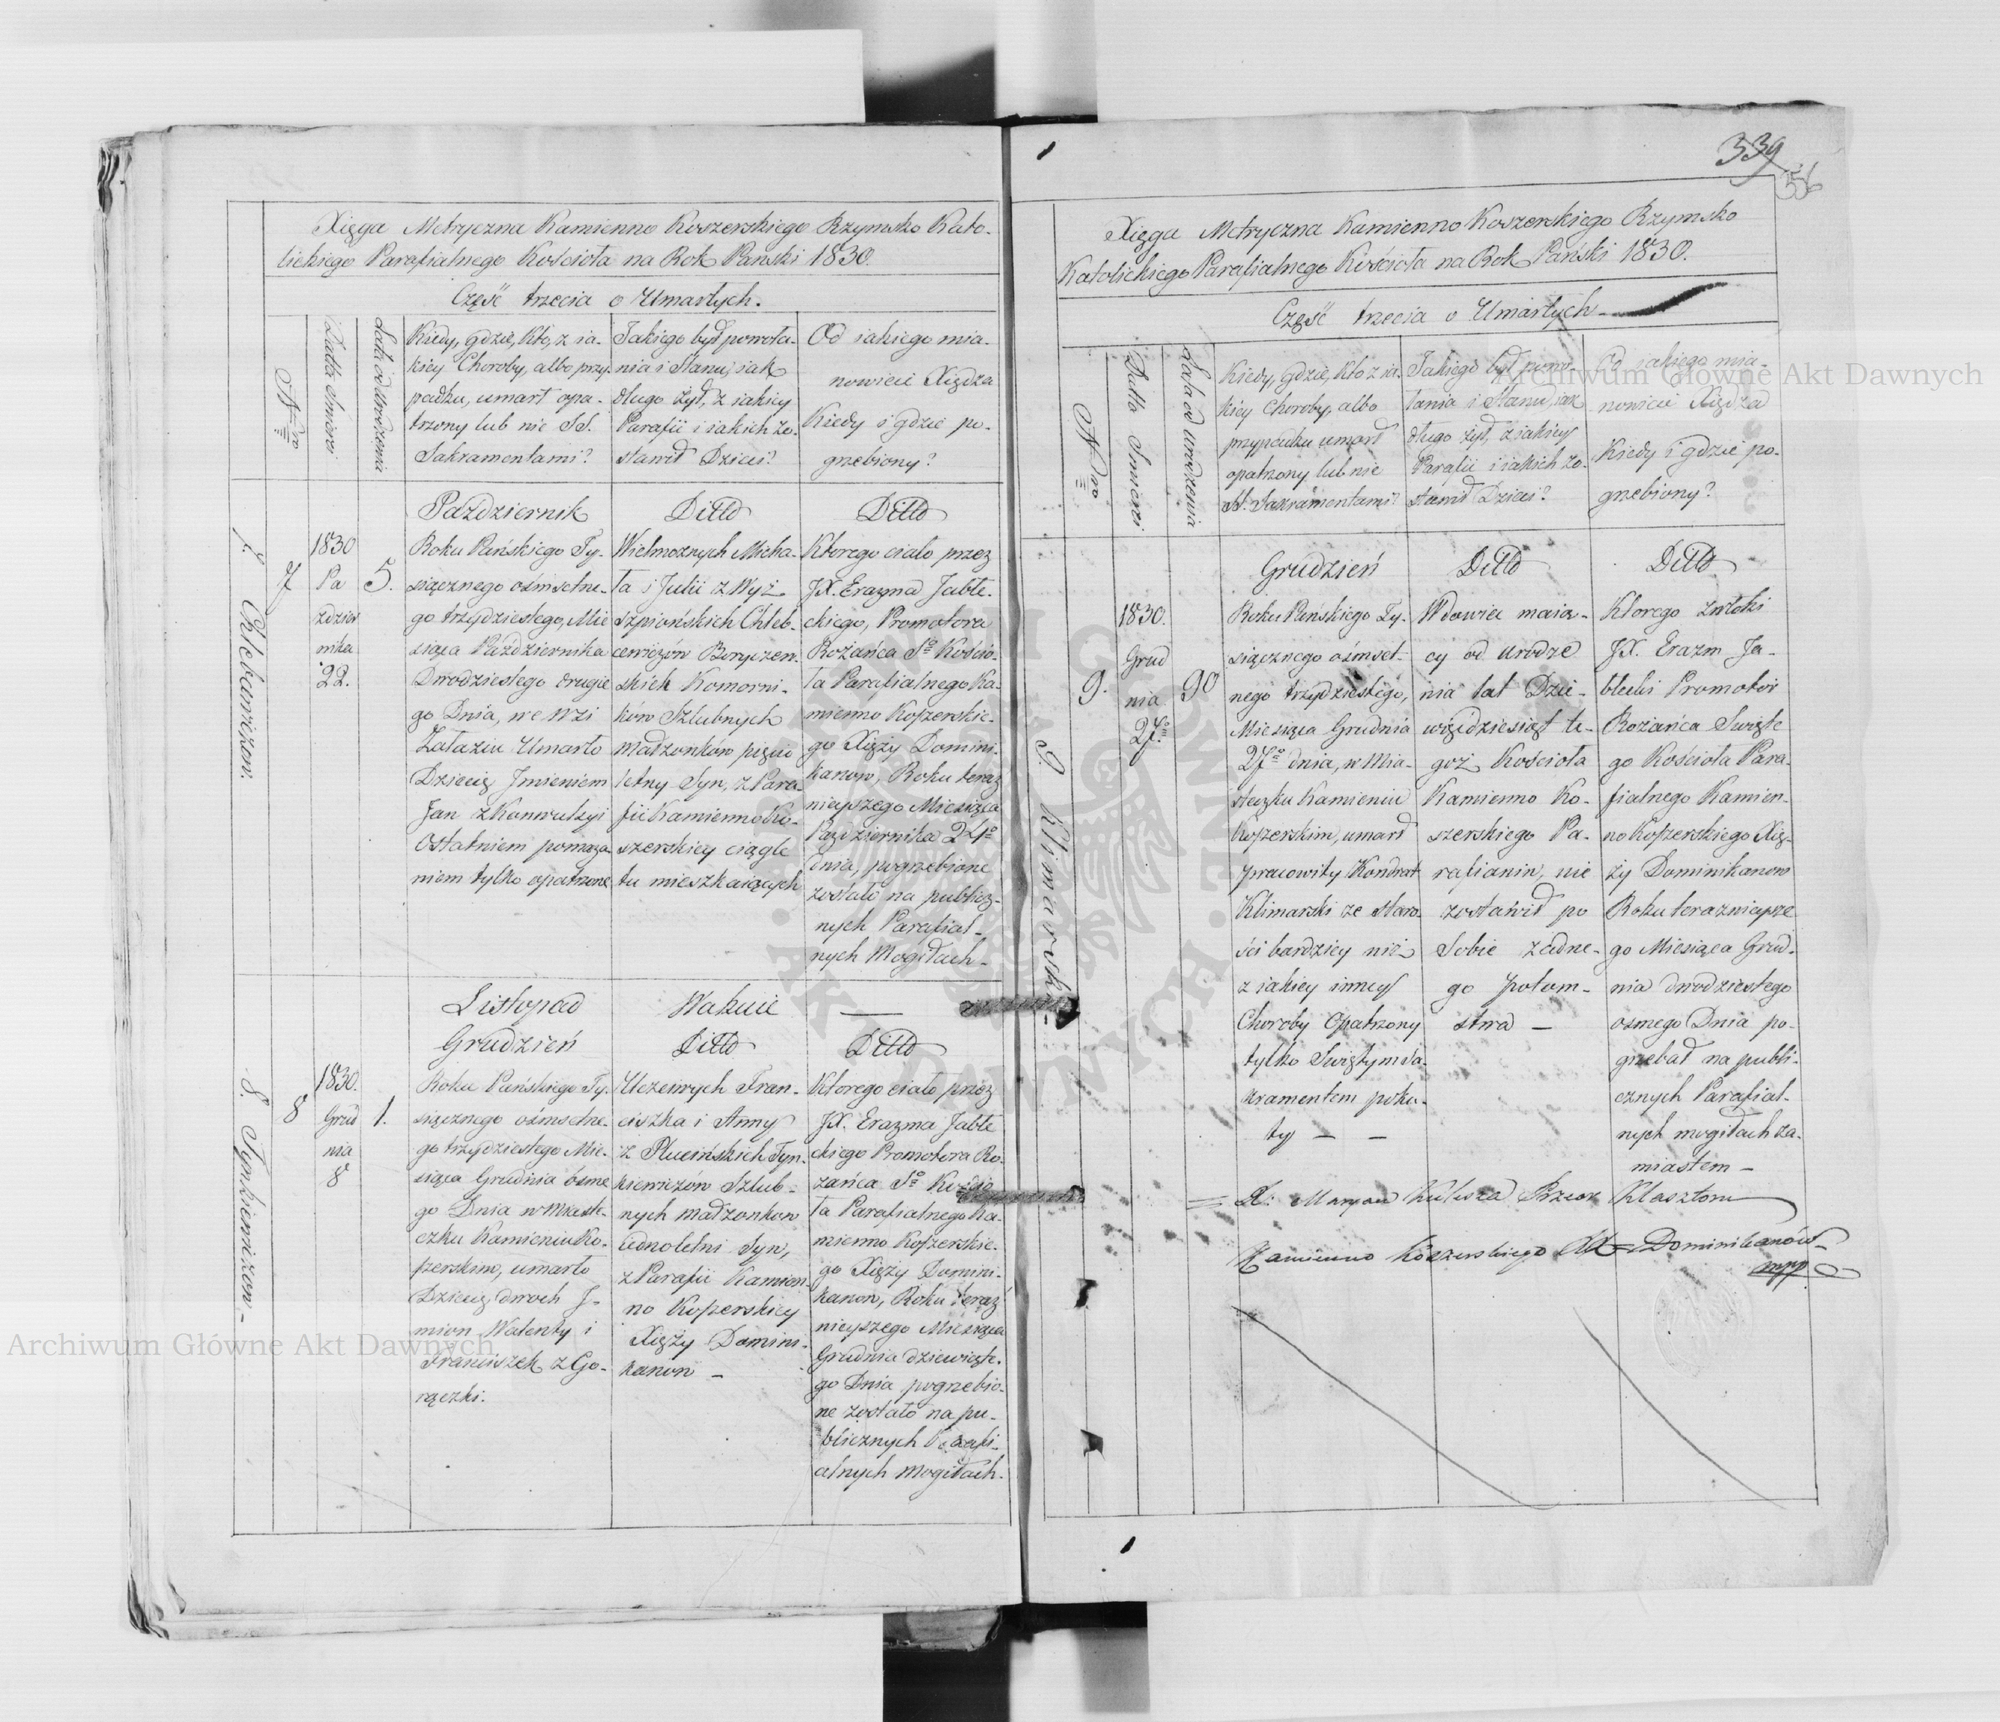 Xięga Metryczna Kamienno Koszerskiego Rzymsko Kato-
lickiego Parafialnego Kościoła na Rok Pański 1830.
Część trzecia o Umarłych.
Nro
Datta Smierci
Lata od Urodzenia
Kiedy, gdzie, kto, z ia-
kiey Choroby, albo przy-
padku, umarł opa-
trzony lub nie SS.
Sakramentami?
Jakiego był powoła-
nia i Stanu, iak
długo żył, z iakiey
Parafii i iakich zo-
stawił Dzieci?
Od iakiego mia-
nowicie Xiędza
Kiedy i gdzie po-
grzebiony?
7. Chlebcewiczow.
7
1830
Pa
zdzier
nika
22.
5.
Październik
Roku Pańskiego Ty-
siącznego ośmsetne-
go trzydziestego, Mie
siąca Października
Dwódziestego drugie
go Dnia, we wsi
Zalaziu Umarło
Dziecię Jmieniem
Jan z Konwulsyi
Ostatniem pomaza-
niem tylko opatrzone
Ditto
Wielmożnych Micha-
ła i Julii z Wyż
szpiońskich Chleb-
cewiczów Boryczew-
skich Komorni-
ków Szlubnych
małżonków pięcio
letny Syn, z Para-
fii Kamienno Ko-
szerskiey ciągle
tu mieszkaiących
Ditto
Ktorego ciało przez
JX. Erazma Jabłe-
ckiego, Promotora
Rożańca So Kościo-
ła Parafialnego Ka-
mienno Koszerskie-
go Xięży Domini-
kanow, Roku teraz
nieyszego Miesiąca
Października 24o
dnia, pogrzebione
zostało na publicz-
nych Parafial-
nych Mogiłach-
8. Synkiewiczow-
8
1830.
Grud
nia
8
1.
Listopad
Wakuie
Grudzień
Roku Pańskiego Ty-
siącznego ośmsetne-
go trzydziestego Mie-
siąca Grudnia ósme
go Dnia w Miaste-
czku Kamieniu Ko-
szerskim, umarło
Dziecię dwoch J-
mion Walenty i
Franciszek z Go-
rączki.
Ditto
Uczciwych Fran-
ciszka i Anny
z Plucińskich Syn-
kiewiczów Szlub-
nych małżonkow
iednoletni Syn,
z Parafii Kamien-
no Koszerskiey
Xięży Domini-
kanow -
Ditto
Ktorego ciało przez
JX. Erazma Jabłe
ckiego Promotora Ro-
żańca So Kościo
ła Parafialnego Ka-
mienno Koszerskie-
go Xięży Domini-
kanow, Roku teraź
nieyszego Miesiąca
Grudnia dziewiąte-
go Dnia pogrzebio-
ne zostało na pu-
blicznych Parafi-
alnych mogiłach.
339
356
Xięga Metryczna Kamienno Koszerskiego Rzymsko
Katolickiego Parafialnego Kościoła na Rok Pański 1830.
Część trzecia o Umarłych-
Nro
Datta Smierci
Lata od Urodzenia
Kiedy, gdzie, kto z ia-
kiey Choroby, albo
przypadku umarł
opatrzony lub nie
SS. Sakramentami?
Jakiego był powo-
łania i Stanu, iak
długo żył, z iakiey
Parafii i iakich zo-
stawił Dzieci?
Od iakiego mia-
nowicie Xiędza
Kiedy i gdzie po-
grzebiony?
9. Klimarski-
9.
1830.
Grud
nia
27.
90
Grudzień
Roku Pańskiego Ty-
siącznego ośmset-
nego trzydziestego,
Miesiąca Grudnia
27o dnia, w Mia-
steczku Kamieniu
Koszerskim, umarł
pracowity Kondrat
Klimarski ze staro-
ści bardziey niż
z iakiey inney
Choroby Opatrzony
tylko Swiętym Sa-
kramentem poku-
ty - -
Ditto
Wdowiec maią-
cy od urodze
nia lat Dzie-
więdziesiąt te-
goż Kościoła
Kamienno Ko-
szerskiego Pa-
rafianin, nie
zostawił po
Sobie żadne-
go potom-
stwa -
Ditto
Ktorego zwłoki
JX. Erazm Ja-
błecki Promotor
Rożańca Swięte
go Kościoła Para-
fialnego Kamien-
no Koszerskiego Xię-
ży Dominikanow
Roku teraznieysze
go Miesiąca Grud-
nia dwodziestego
osmego Dnia po-
grzebał na publi-
cznych Parafial-
nych mogiłach za-
miastem -
X: Maryan Kulesza Przeor Klasztoru
Kamienno Koszerskiego XX Dominikanów-
mpp
Archiwum Główne Akt Dawnych
Archiwum Główne Akt Dawnych